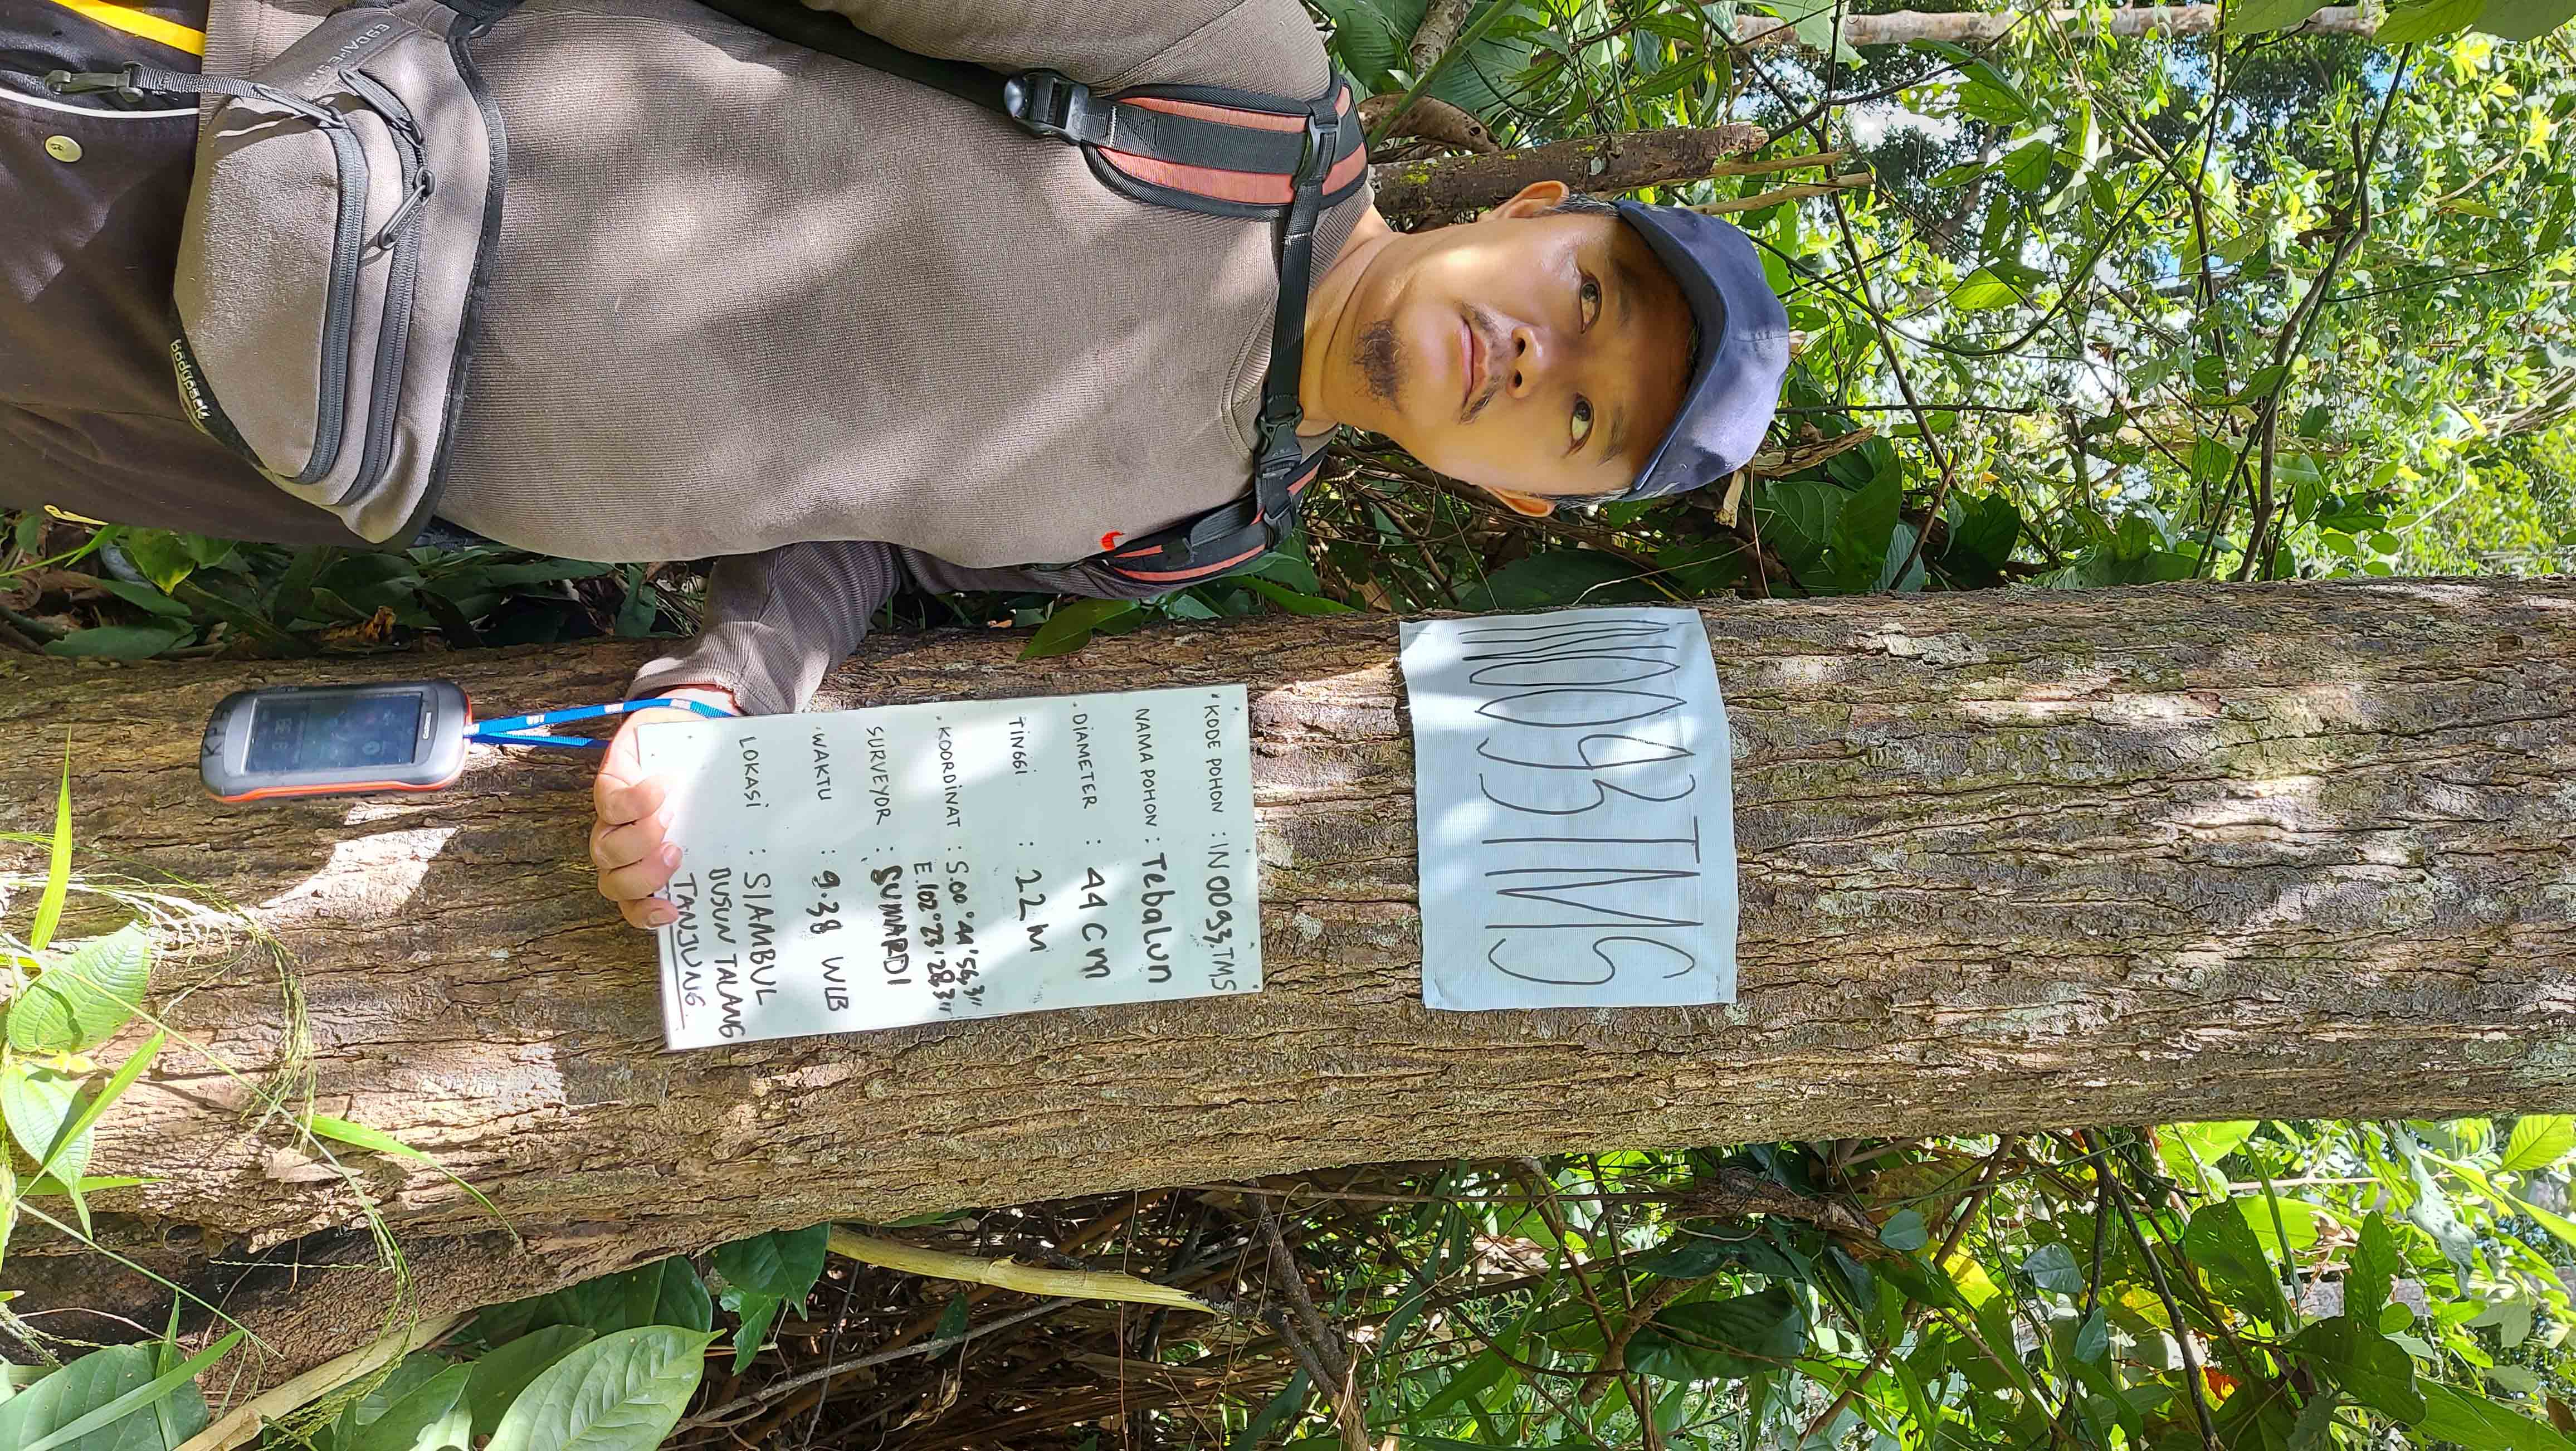 IN0093TMS
KODE POHON : IN 0093.TMS
NAMA POHON : Tebalun
DIAMETER : 44 CM
TINGGI : 22 M
KOORDINAT : S.00°44'56,3"
E.102°23'28,3"
SURVEYOR : SUMARDI
WAKTU : 9.38 WIB
LOKASI : SIAMBUL
DUSUN TALANG
TANJUNG.
GARMIN
bodypack